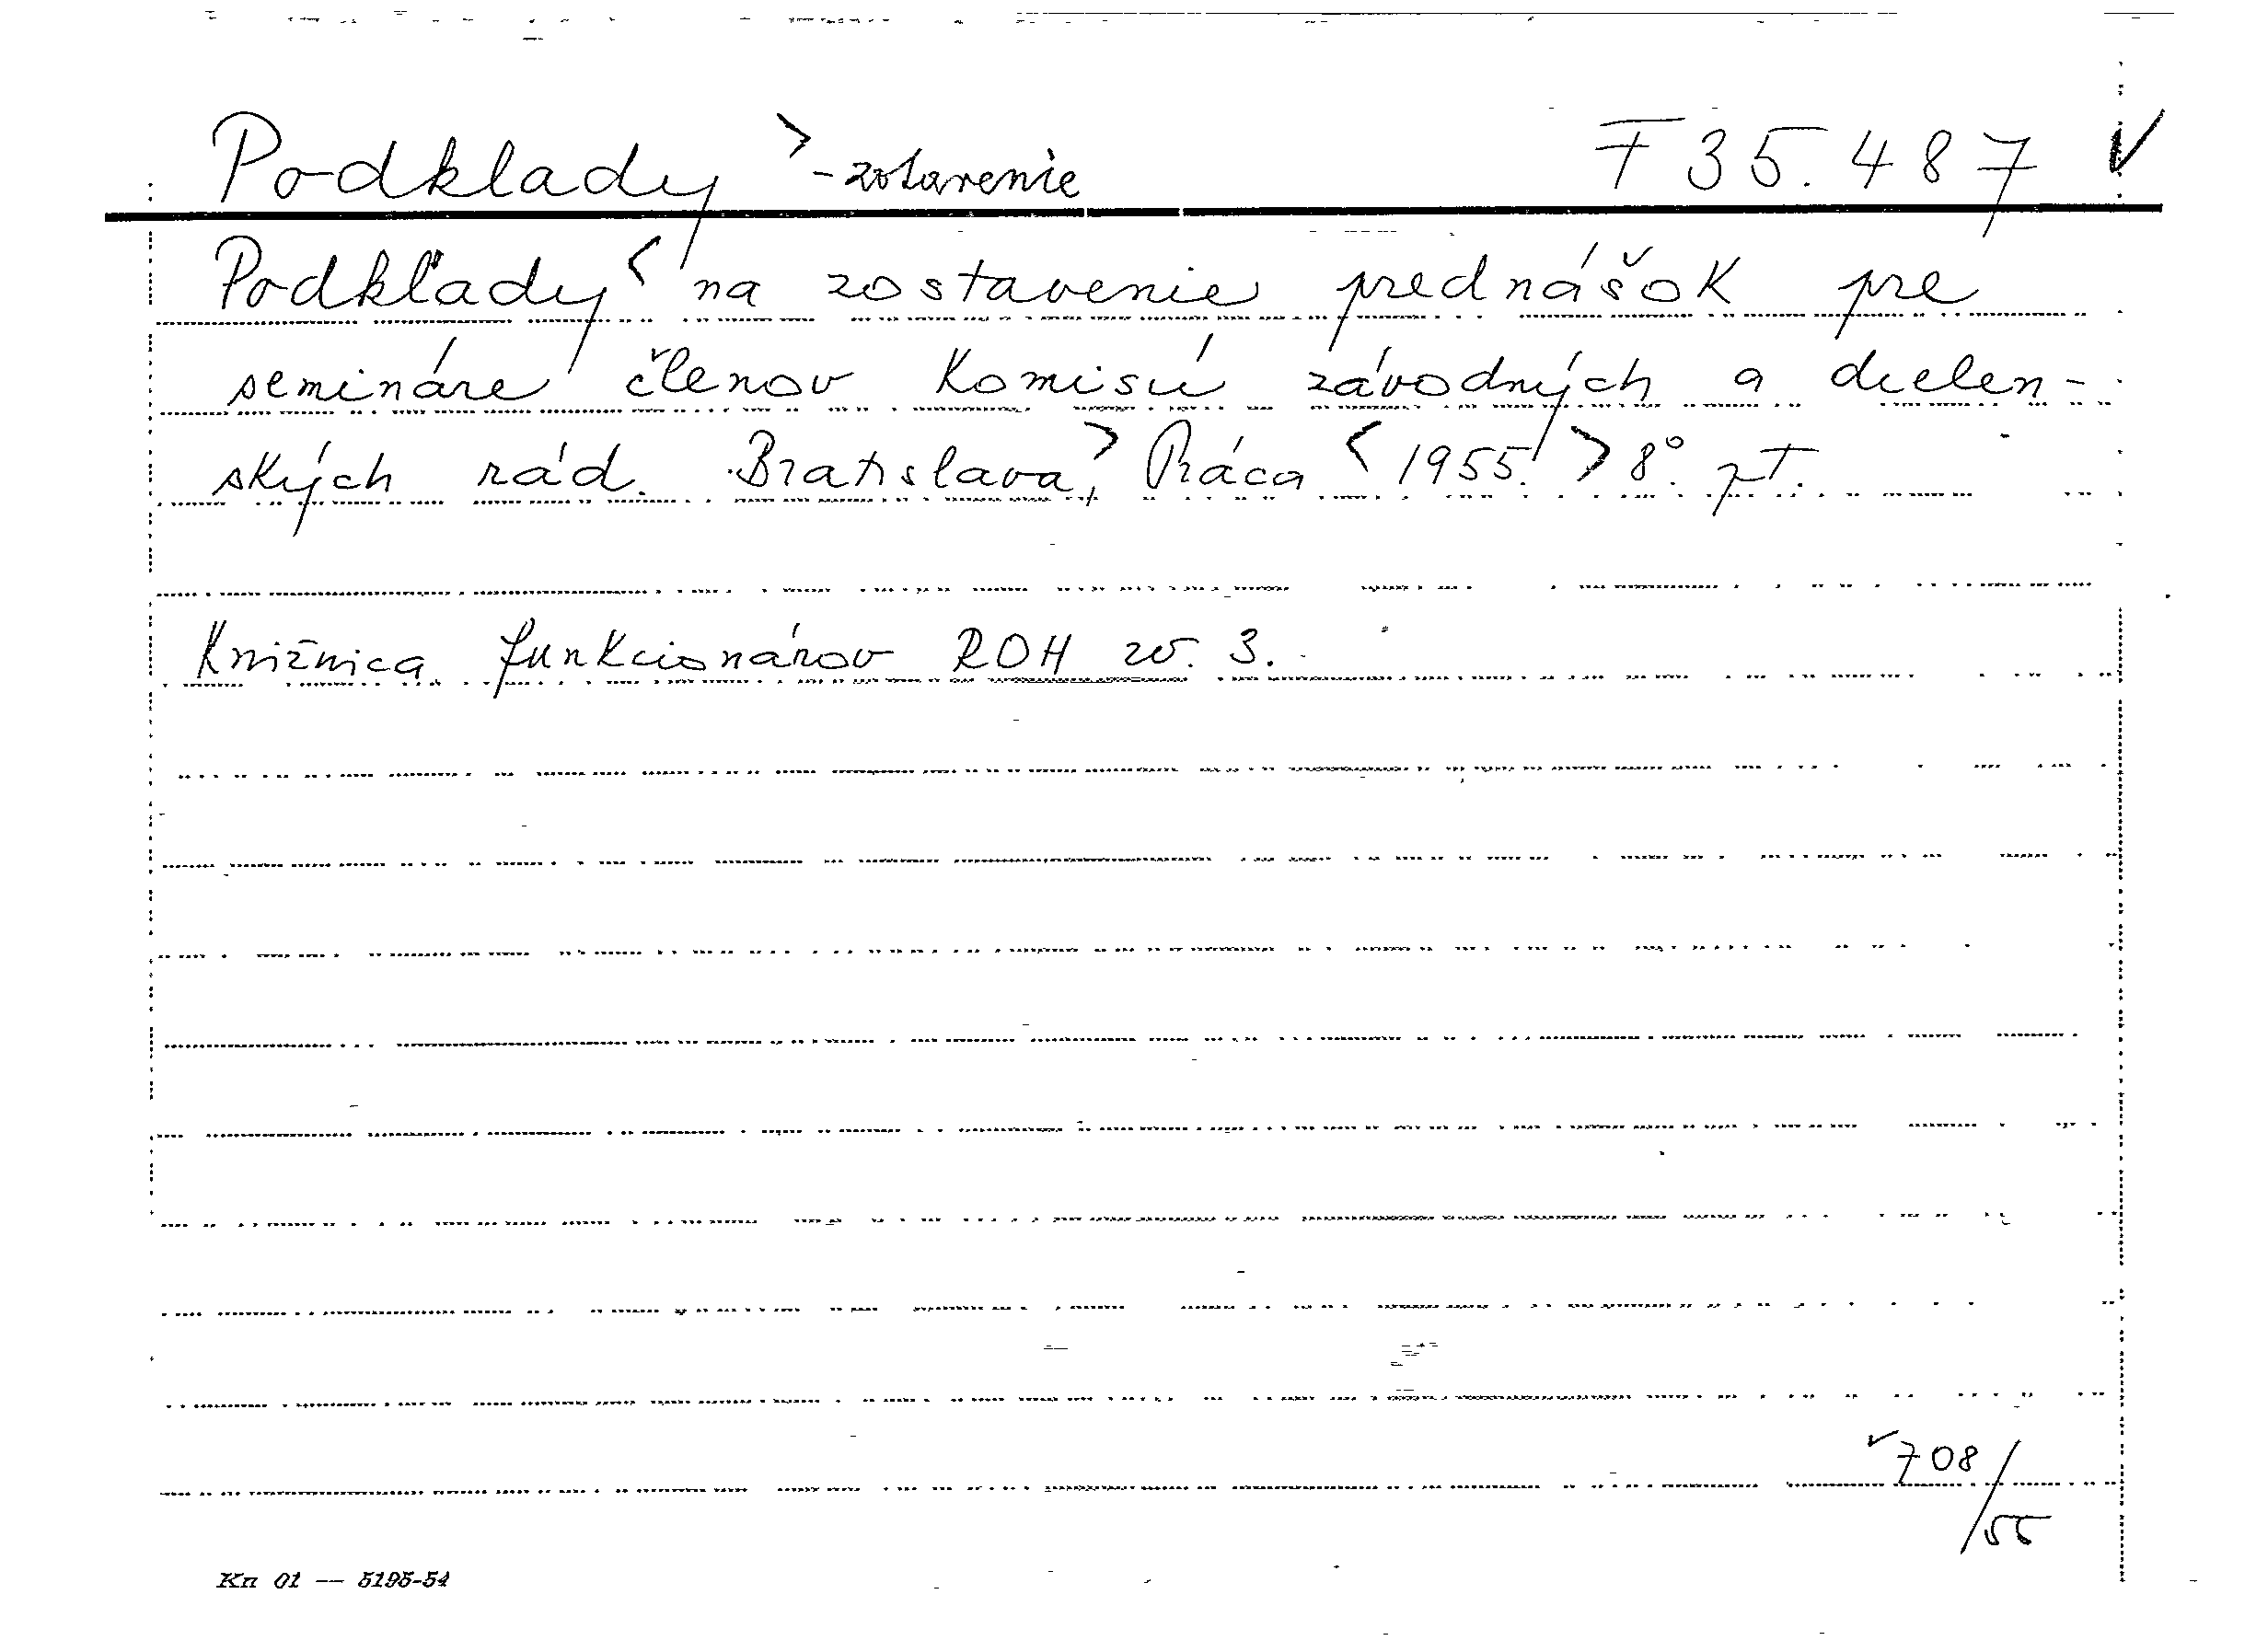 Podklady > -zostavenie F 35.487 ✓
Podklady < na zostavenie prednášok pre
semináre členov komisií závodných a dielen-
ských rád. Bratislava, > Práca < 1955. > 8°. pt.
Knižnica funkcionárov ROH zv. 3.
✓708/55
Kn 01 — 5195-54